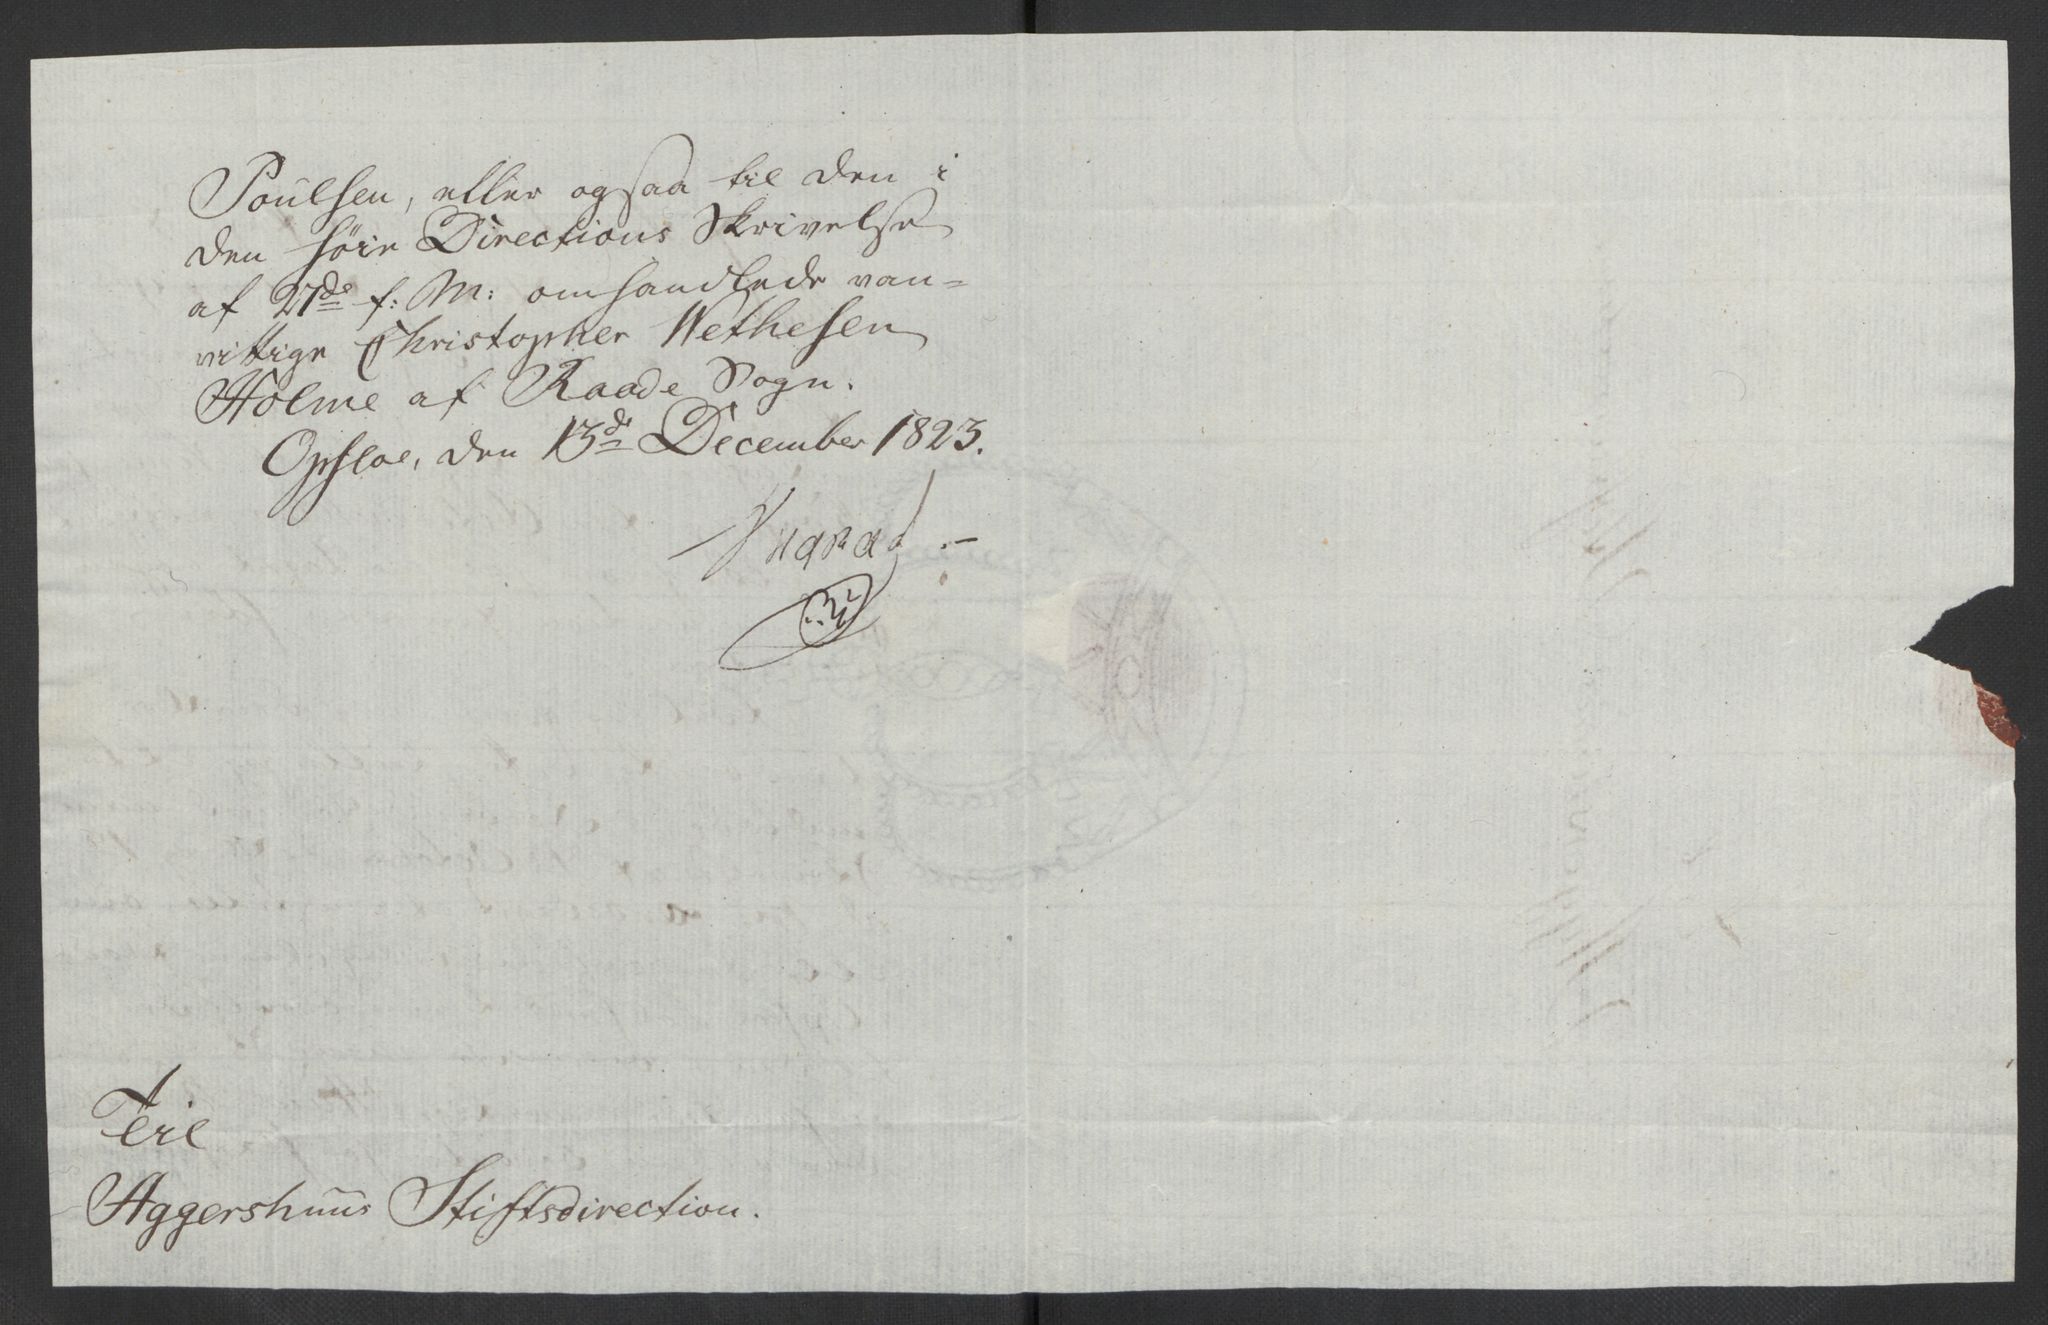 Poulsen, eller ogsaa til den i
den høie Directions Skrivelse
af 27de f: M: omhandlede van=
vittige Christopher Methesen
Holme af Raade Sogn.
Opsloe, den 13de December 1823.
Teil
Aggershuus Stiftsdirection.